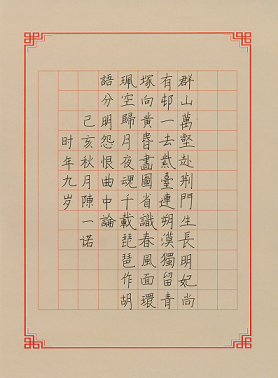 群山萬壑赴荆門生長明妃尚
有邨一去紫臺連朔漠獨留青
塚向黃昏畫圖省識春風面環
珮空歸月夜魂千載琵琶作胡
語分明怨恨曲中論
己亥秋月陳一诺
时年九岁